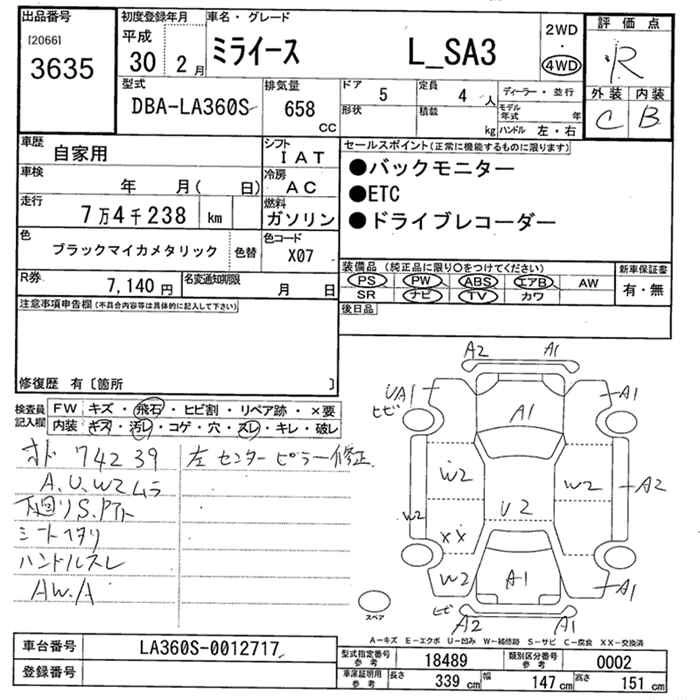 出品番号 初度登録年月 車名・グレード 2WD 評価点
[2066] 平成 ・ R
3635 30 2月 ミライース L_SA3 4WD 外装 内装
C B
型式 排気量 ドア 5 定員 4 人 ディーラー・並行
DBA-LA360S 658 cc 形状 積載 kg モデル年式 年
ハンドル 左・右
車歴 自家用 シフト IAT セールスポイント(正常に機能するものに限ります)
車検 年 月( 日) 冷房 AC ●バックモニター
走行 7万4千238 km 燃料 ガソリン ●ETC
●ドライブレコーダー
色 ブラックマイカメタリック 色替 色コード X07
R券 7,140円 名変通知期限 月 日
装備品(純正品に限り○をつけてください) 新車保証書
PS PW ABS エアB AW 有・無
SR ナビ TV カワ
注意事項申告欄(不具合内容等は具体的に記入して下さい) 後日品
修復歴 有〔箇所 〕
検査員記入欄 FW キズ・飛石・ヒビ割・リペア跡・×要
内装 キズ・汚レ・コゲ・穴・スレ・キレ・破レ
オド 74239 左センターピラー修正
A.U.W2ムラ
下廻りS.Pアト
シートヘタリ
ハンドルスレ
AW.A
A2 A1
UA1 A1 A1
ヒビ
W2 W2 A2
W2 U2
XX
W2 A1 A1
ヒビ
A2 A1
スペア
A-キズ E-エクボ U-凹み W-補修跡 S-サビ C-腐食 XX-交換済
車台番号 LA360S-0012717 型式指定番号 参考 18489 類別区分番号 参考 0002
登録番号 車庫証明用 参考 長さ 339 cm 幅 147 cm 高さ 151 cm